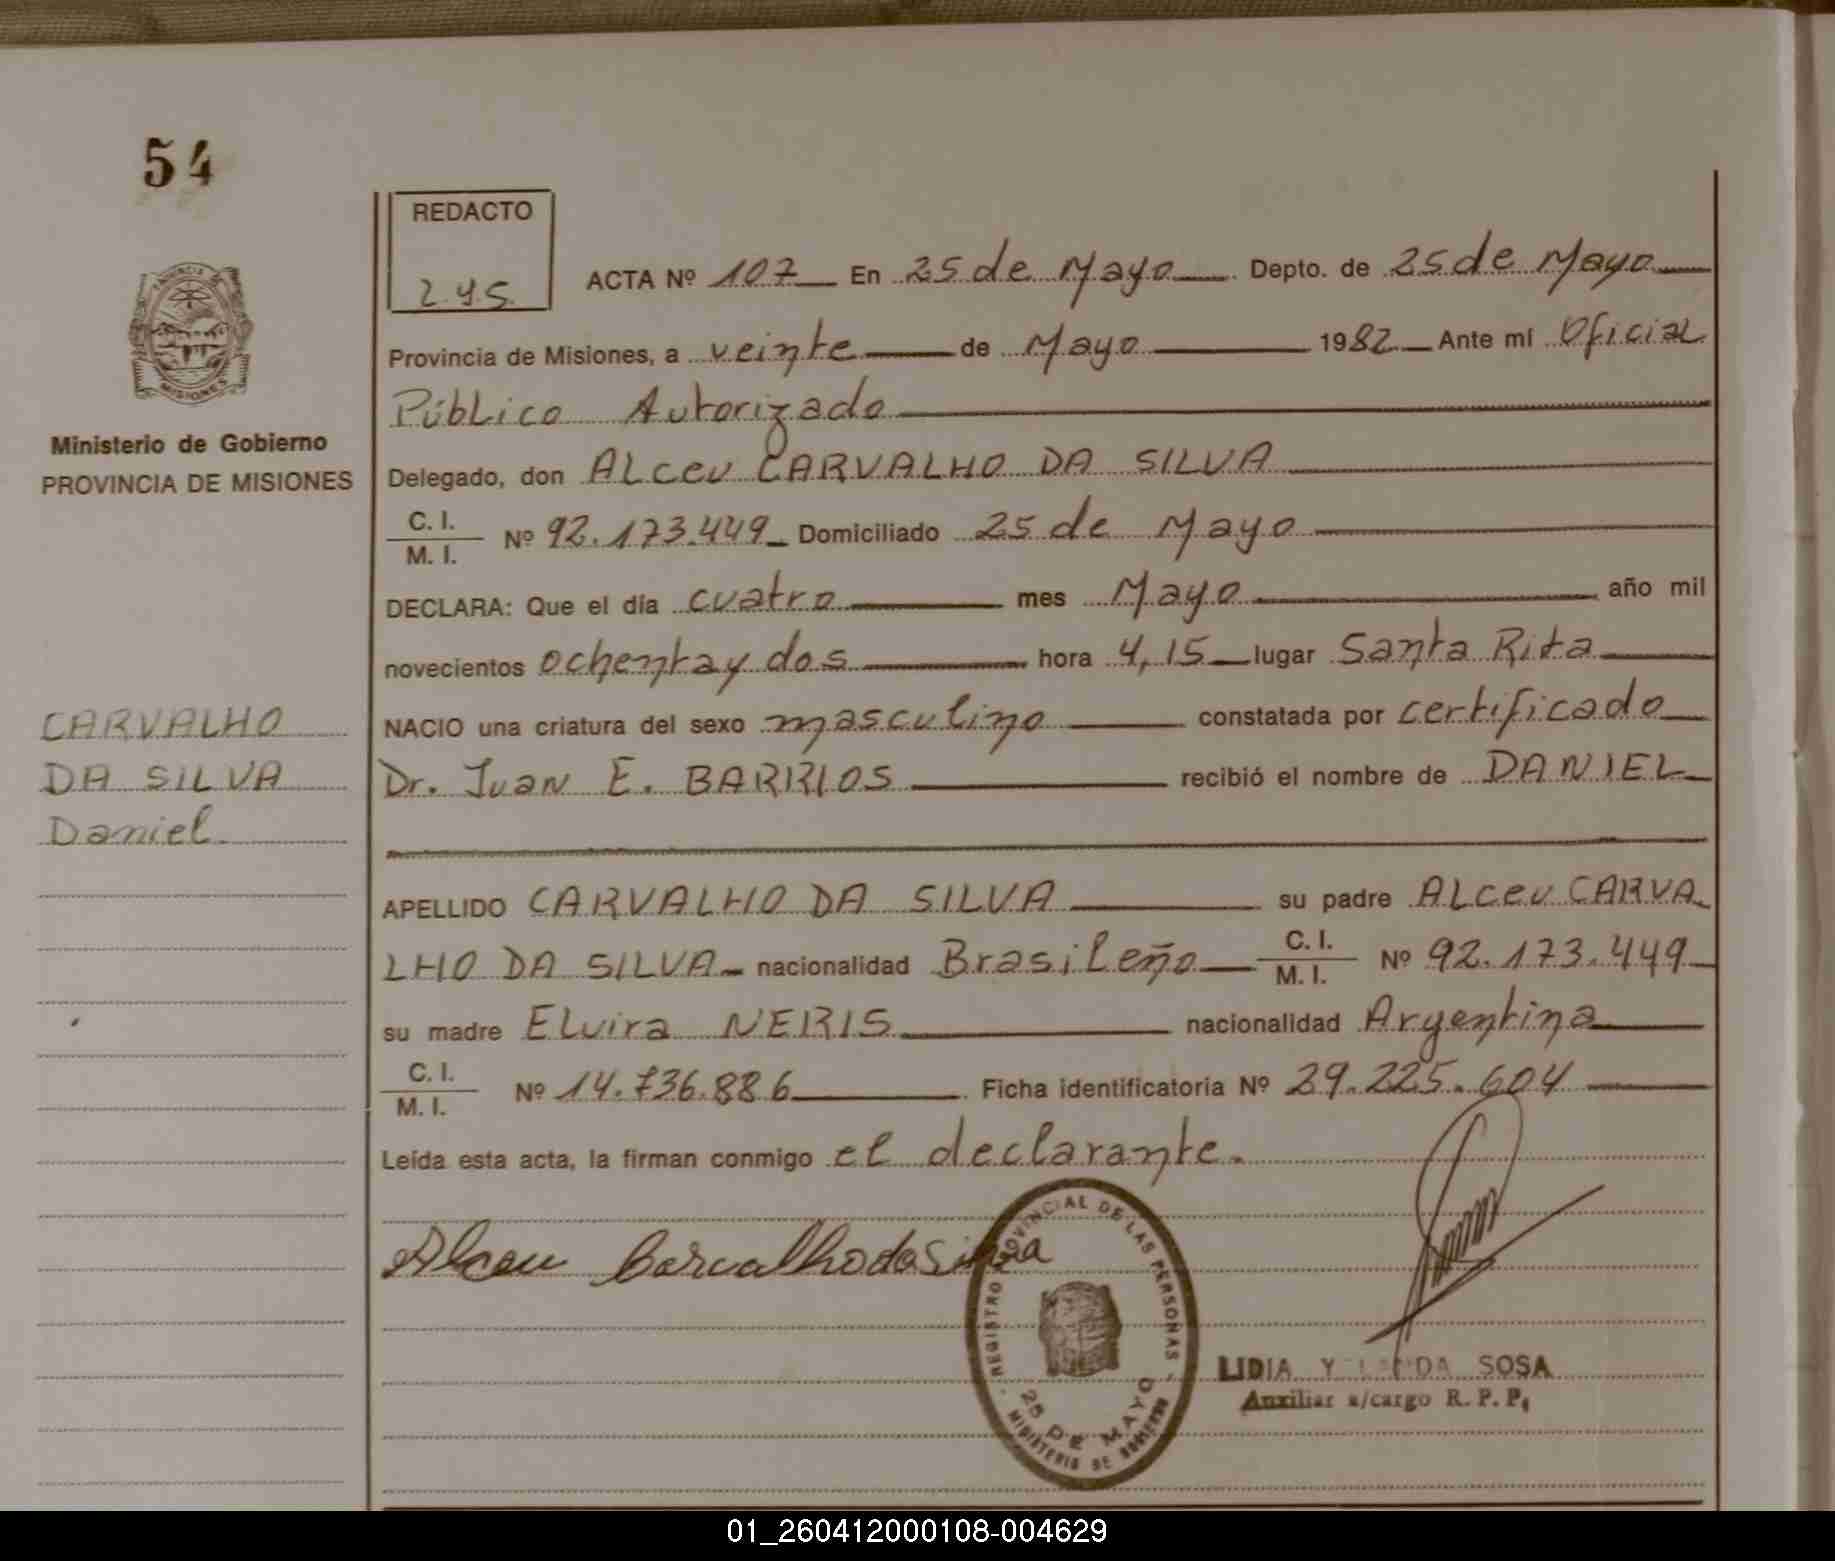 54
REDACTO
L.Y.S.
ACTA Nº 107 En 25 de Mayo Depto. de 25 de Mayo
Provincia de Misiones, a veinte de Mayo 1982 Ante mí Oficial
Público Autorizado
Delegado, don ALceu CARVALHO DA SILVA
C. I.
M. I. Nº 92.173.449 Domiciliado 25 de Mayo
DECLARA: Que el día cuatro mes Mayo año mil
novecientos ochenta y dos hora 4,15 lugar Santa Rita
NACIO una criatura del sexo masculino constatada por certificado
Dr. Juan E. BARRIOS recibió el nombre de DANIEL
APELLIDO CARVALHO DA SILVA su padre ALceu CARVA
LHO DA SILVA nacionalidad Brasileño C. I.
M. I. Nº 92.173.449
su madre ELvira NERIS nacionalidad Argentina
C. I.
M. I. Nº 14.736.886 Ficha identificatoria Nº 29.225.604
Leída esta acta, la firman conmigo el declarante.
Alceu Carvalho da Silva
REGISTRO PROVINCIAL DE LAS PERSONAS
25 DE MAYO
MINISTERIO DE GOBIERNO
LIDIA YOLANDA SOSA
Auxiliar a/cargo R. P. P.
PROVINCIA DE
MISIONES
Ministerio de Gobierno
PROVINCIA DE MISIONES
CARVALHO
DA SILVA
Daniel
01_260412000108-004629